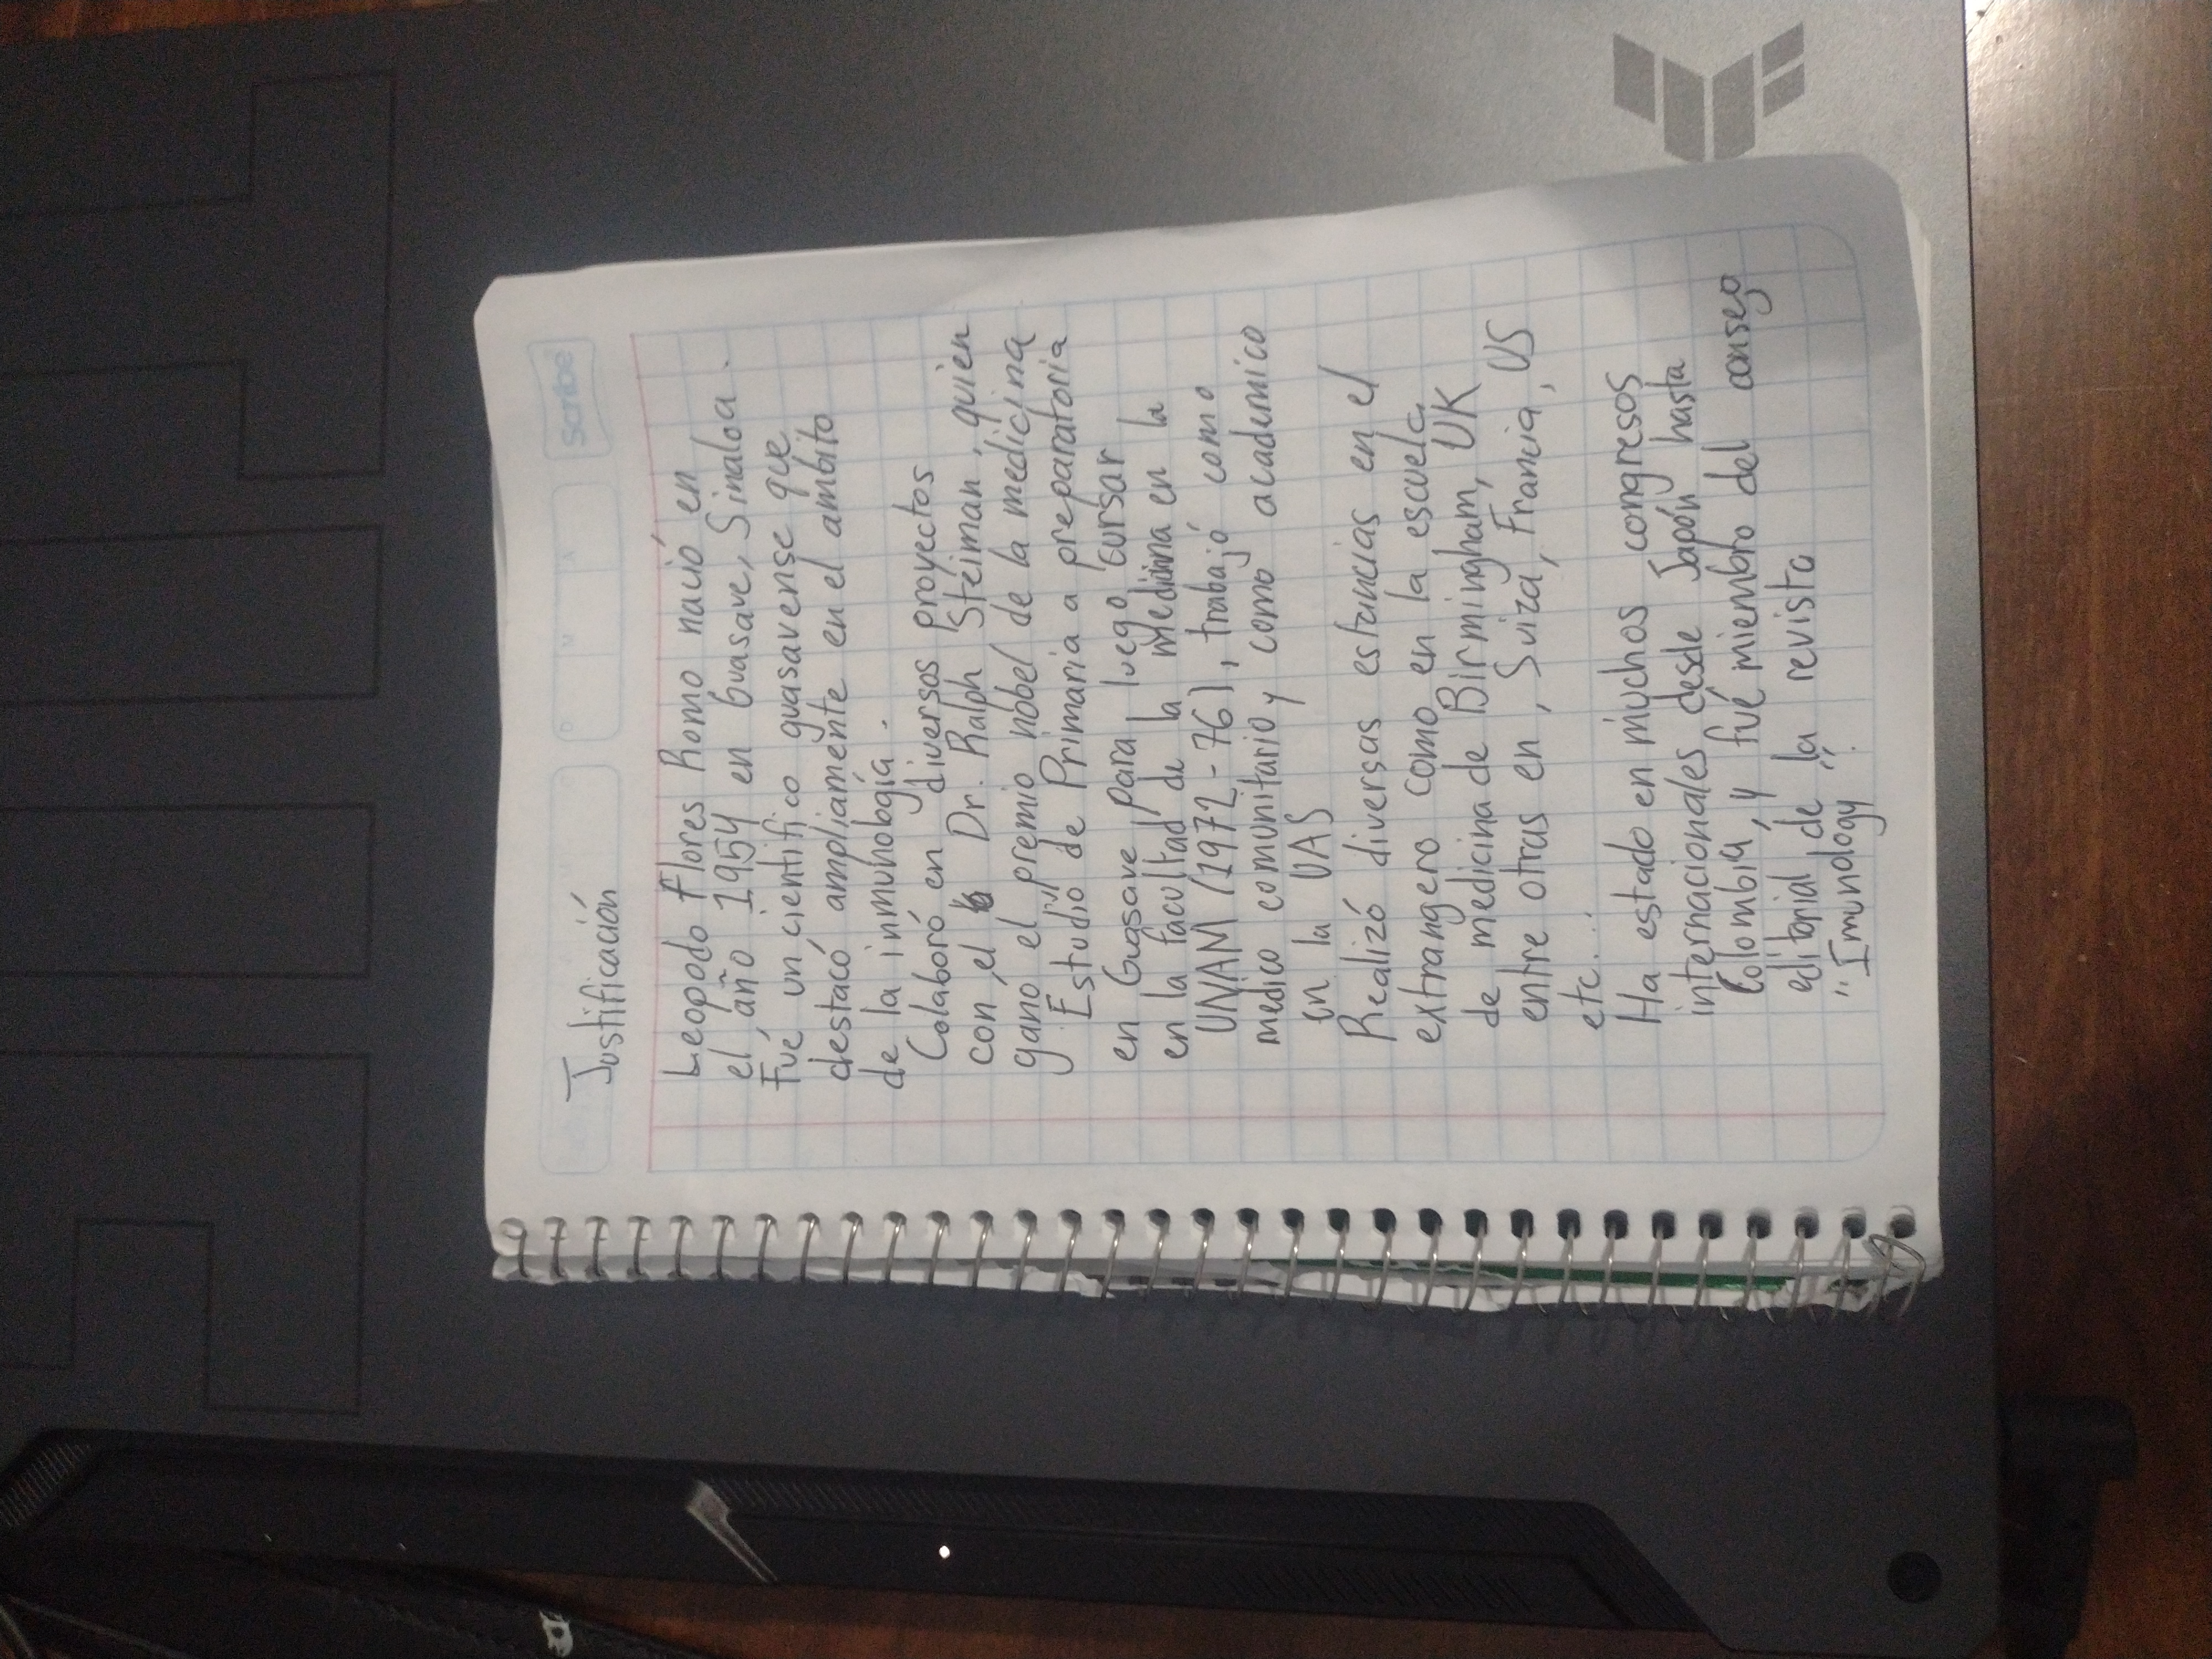 Scribe
D M A
Justificación
Leopodo Flores Romo nació en
el año 1954 en Guasave, Sinaloa.
Fue un cientifico guasavense que
destacó ampliamente en el ambito
de la inmunología.
Colaboró en diversos proyectos
con el Dr. Ralph Steiman, quien
gano el premio nobel de la medicina
Estudió de Primaria a preparatoria
en Guasave para luego cursar
en la facultad de la medicina en la
UNAM (1972-76), trabajó como
medico comunitario y como academico
en la UAS
Realizó diversas estancias en el
extrangero como en la escuela
de medicina de Birmingham, UK
entre otras en, Suiza, Francia, US
etc...
Ha estado en muchos congresos
internacionales desde Japón hasta
Colombia, y fué miembro del consego
editorial de la revista
"Imunology".